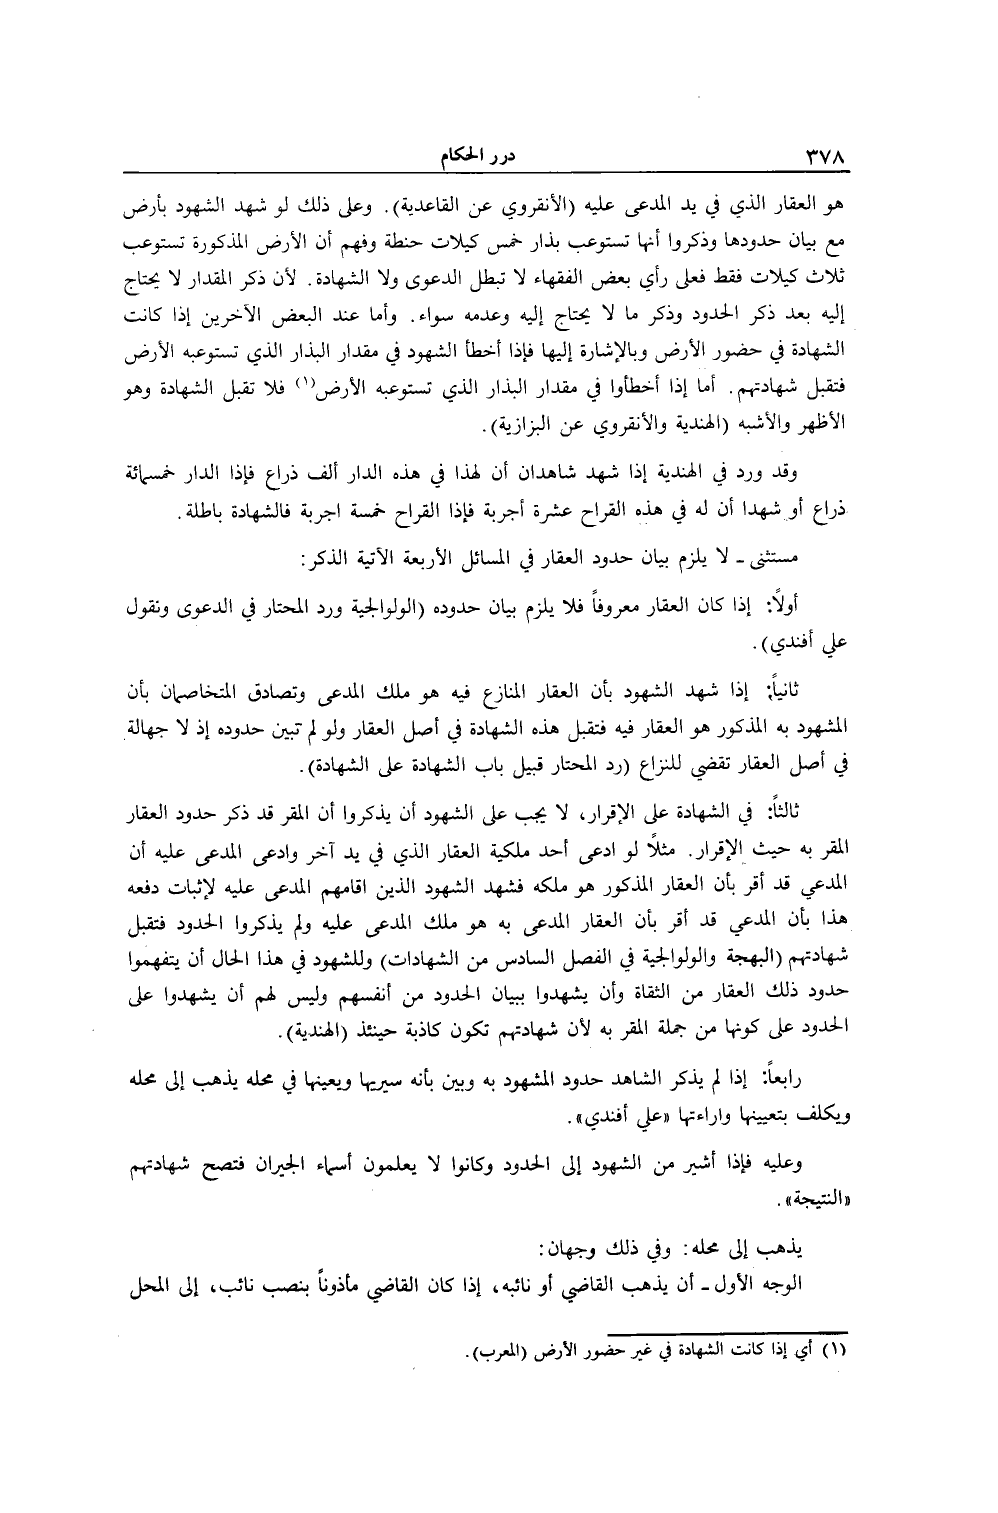 ٣٧٨
درر الحكام
هو العقار الذي في يد المدعى عليه (الأنقروي عن القاعدية). وعلى ذلك لو شهد الشهود بأرض
مع بيان حدودها وذكروا أنها تستوعب بذار خمس كيلات حنطة وفهم أن الأرض المذكورة تستوعب
ثلاث كيلات فقط فعلى رأي بعض الفقهاء لا تبطل الدعوى ولا الشهادة. لأن ذكر المقدار لا يحتاج
إليه بعد ذكر الحدود وذكر ما لا يحتاج إليه وعدمه سواء. وأما عند البعض الآخرين إذا كانت
الشهادة في حضور الأرض وبالإشارة إليها فإذا أخطأ الشهود في مقدار البذار الذي تستوعبه الأرض
فتقبل شهادتهم. أما إذا أخطأوا في مقدار البذار الذي تستوعبه الأرض(١) فلا تقبل الشهادة وهو
الأظهر والأشبه (الهندية والأنقروي عن البزازية).
وقد ورد في الهندية إذا شهد شاهدان أن لهذا في هذه الدار ألف ذراع فإذا الدار خمسمائة
ذراع أو شهدا أن له في هذه القراح عشرة أجربة فإذا القراح خمسة اجربة فالشهادة باطلة.
مستثنى ـ لا يلزم بيان حدود العقار في المسائل الأربعة الآتية الذكر:
أولاً: إذا كان العقار معروفاً فلا يلزم بيان حدوده (الولوالجية ورد المحتار في الدعوى ونقول
علي أفندي).
ثانياً: إذا شهد الشهود بأن العقار المنازع فيه هو ملك المدعى وتصادق المتخاصمان بأن
المشهود به المذكور هو العقار فيه فتقبل هذه الشهادة في أصل العقار ولو لم تبين حدوده إذ لا جهالة
في أصل العقار تقضي للنزاع (رد المحتار قبيل باب الشهادة على الشهادة).
ثالثاً: في الشهادة على الإقرار، لا يجب على الشهود أن يذكروا أن المقر قد ذكر حدود العقار
المقر به حيث الإقرار. مثلاً لو ادعى أحد ملكية العقار الذي في يد آخر وادعى المدعى عليه أن
المدعي قد أقر بأن العقار المذكور هو ملكه فشهد الشهود الذين اقامهم المدعى عليه لإثبات دفعه
هذا بأن المدعي قد أقر بأن العقار المدعى به هو ملك المدعى عليه ولم يذكروا الحدود فتقبل
شهادتهم (البهجة والولوالجية في الفصل السادس من الشهادات) وللشهود في هذا الحال أن يتفهموا
حدود ذلك العقار من الثقاة وأن يشهدوا ببيان الحدود من أنفسهم وليس لهم أن يشهدوا على
الحدود على كونها من جملة المقر به لأن شهادتهم تكون كاذبة حينئذ (الهندية).
رابعاً: إذا لم يذكر الشاهد حدود المشهود به وبين بأنه سيريها ويعينها في محله يذهب إلى محله
ويكلف بتعيينها واراءتها «علي أفندي».
وعليه فإذا أشير من الشهود إلى الحدود وكانوا لا يعلمون أسماء الجيران فتصح شهادتهم
«النتيجة».
يذهب إلى محله: وفي ذلك وجهان:
الوجه الأول ـ أن يذهب القاضي أو نائبه، إذا كان القاضي مأذوناً بنصب نائب، إلى المحل
(١) أي إذا كانت الشهادة في غير حضور الأرض (المعرب).